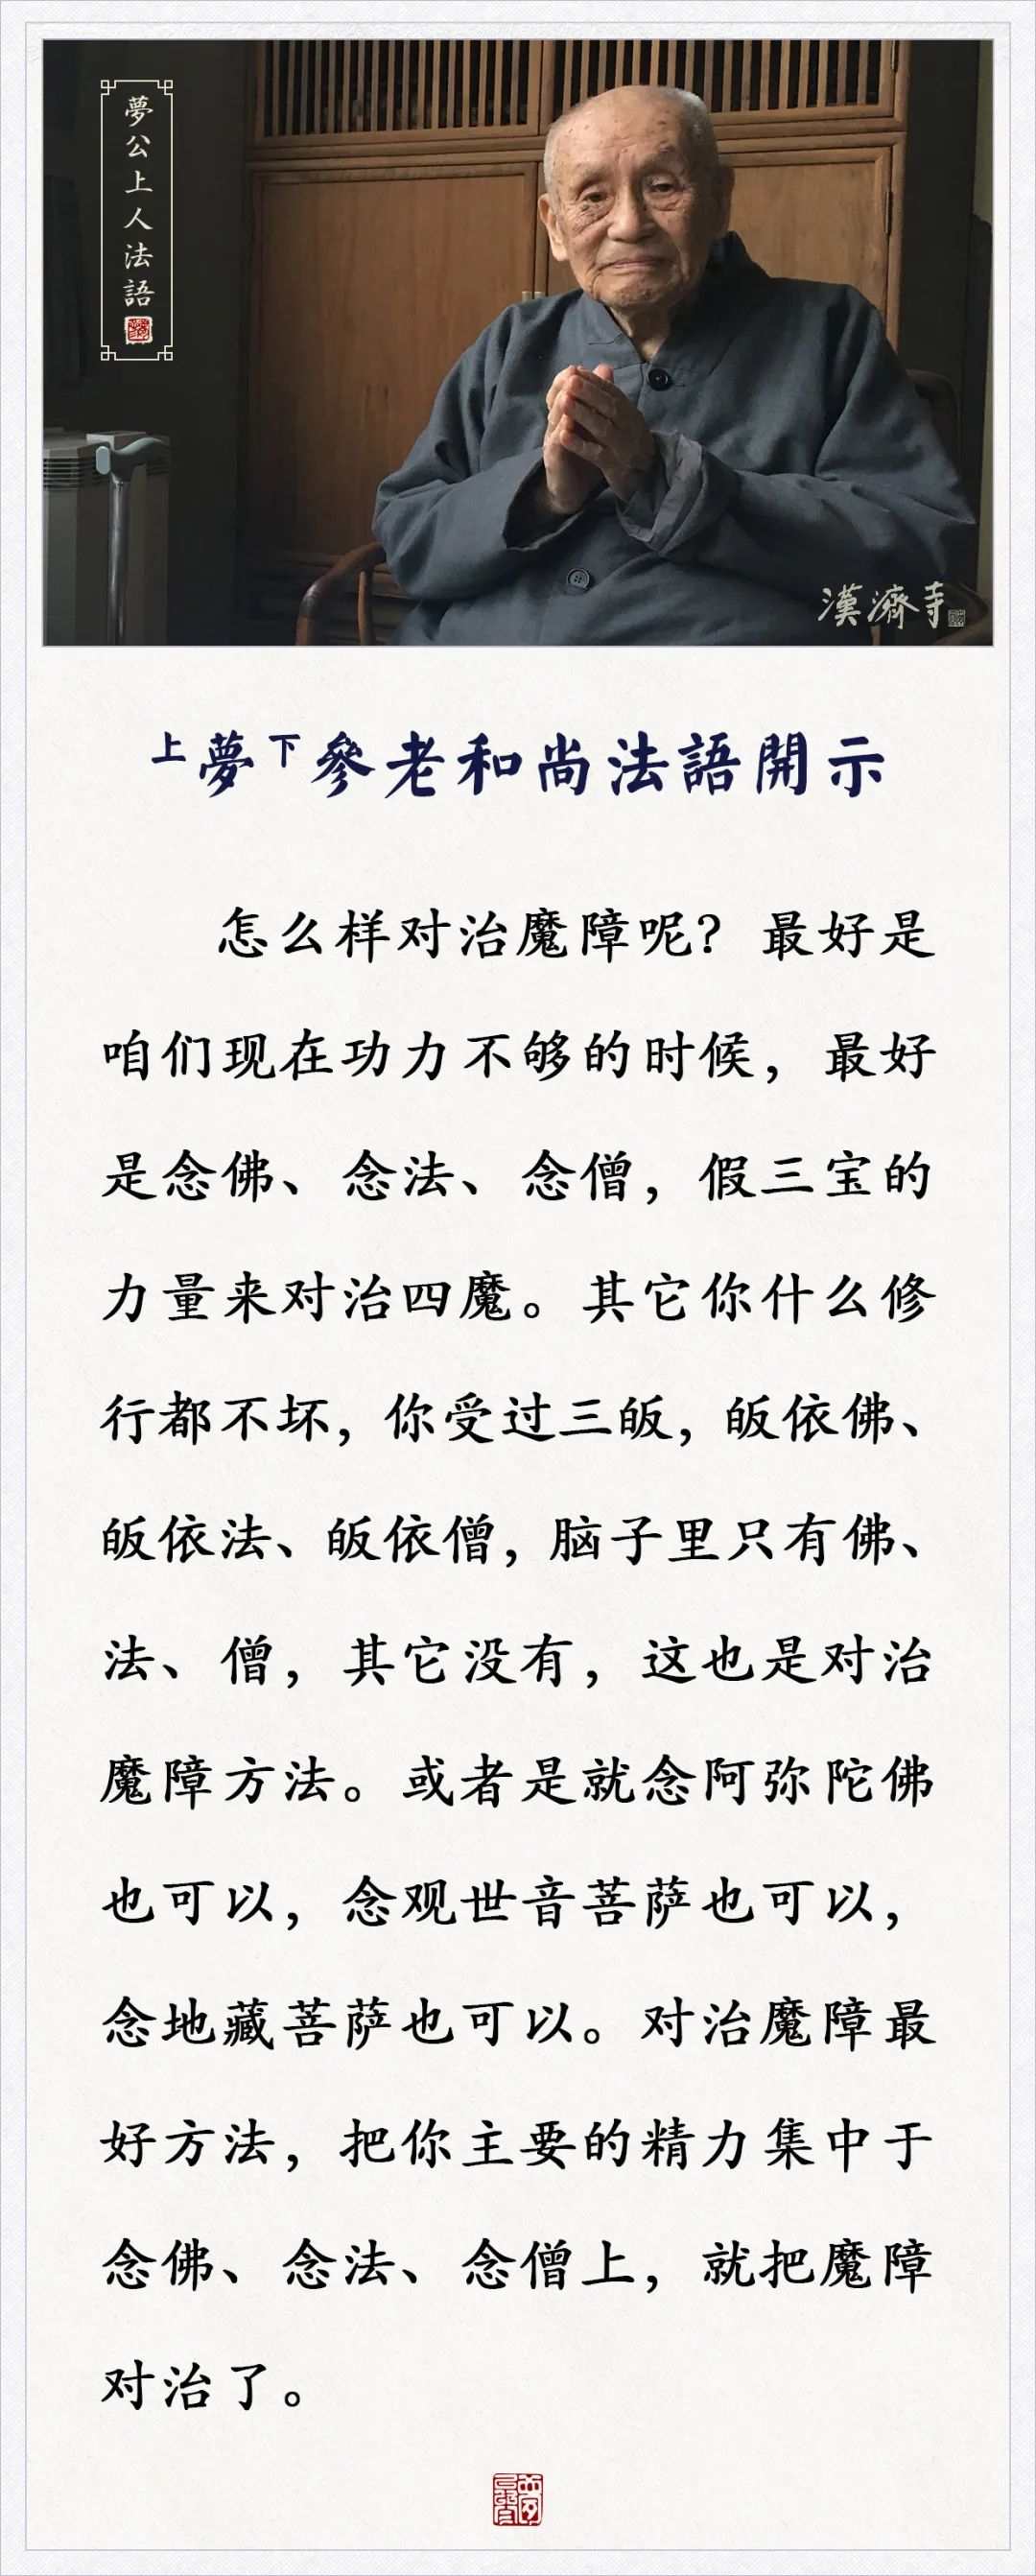 夢公上人法語
漢濟寺
上夢下參老和尚法語開示
怎么样对治魔障呢？最好是
咱们现在功力不够的时候，最好
是念佛、念法、念僧，假三宝的
力量来对治四魔。其它你什么修
行都不坏，你受过三皈，皈依佛、
皈依法、皈依僧，脑子里只有佛、
法、僧，其它没有，这也是对治
魔障方法。或者是就念阿弥陀佛
也可以，念观世音菩萨也可以，
念地藏菩萨也可以。对治魔障最
好方法，把你主要的精力集中于
念佛、念法、念僧上，就把魔障
对治了。